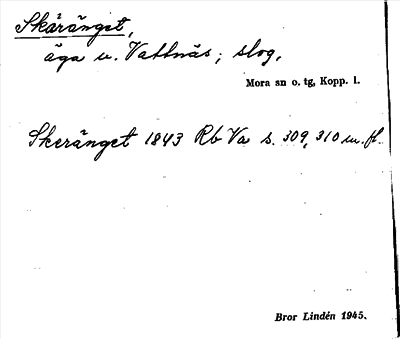 Skäränget,
äga u. Vattnäs; slog.
Mora sn o. tg, Kopp. l.
Skeränget 1843 Rb Va s. 309, 310 m. fl.
Bror Lindén 1945.